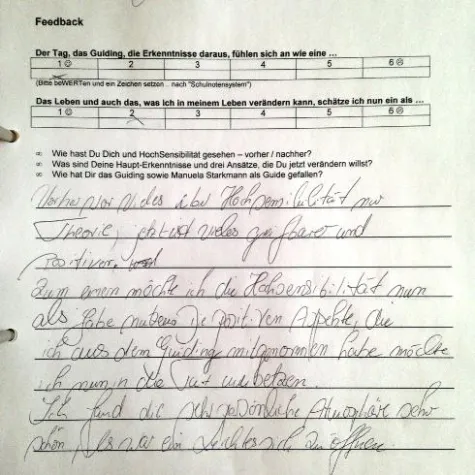 Feedback
Der Tag, das Guiding, die Erkenntnisse daraus, fühlen sich an wie eine ...
1☺ 2 3 4 5 6☹
(Bitte beWERTen und ein Zeichen setzen .. nach "Schulnotensystem")
Das Leben und auch das, was ich in meinem Leben verändern kann, schätze ich nun ein als ...
1☺ 2 3 4 5 6☹
Wie hast Du Dich und HochSensibilität gesehen – vorher / nachher?
Was sind Deine Haupt-Erkenntnisse und drei Ansätze, die Du jetzt verändern willst?
Wie hat Dir das Guiding sowie Manuela Starkmann als Guide gefallen?
Vorher war vieles über Hochsensibilität nur
Theorie, jetzt ist vieles greifbarer und
positiver.
Zum einen möchte ich die Hochsensibilität nun
als Gabe nutzen. Die positiven Aspekte, die
ich aus dem Guiding mitgenommen habe möchte
ich nun in die Tat umsetzen.
Ich fand die sehr persönliche Atmosphäre sehr
schön, es war ein Leichtes sich zu öffnen.